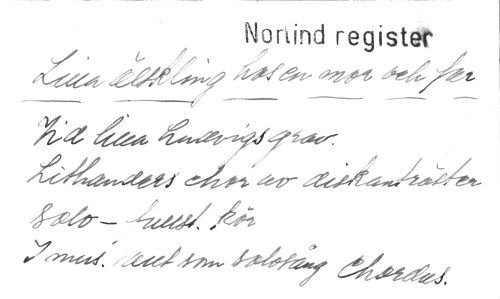 Norlind register
Lilla älskling hos en mor och far
Vid lilla Ludvigs grav.
Lithanders chor av diskantröster
Solo – kör
I mus. som solosång Chordus.